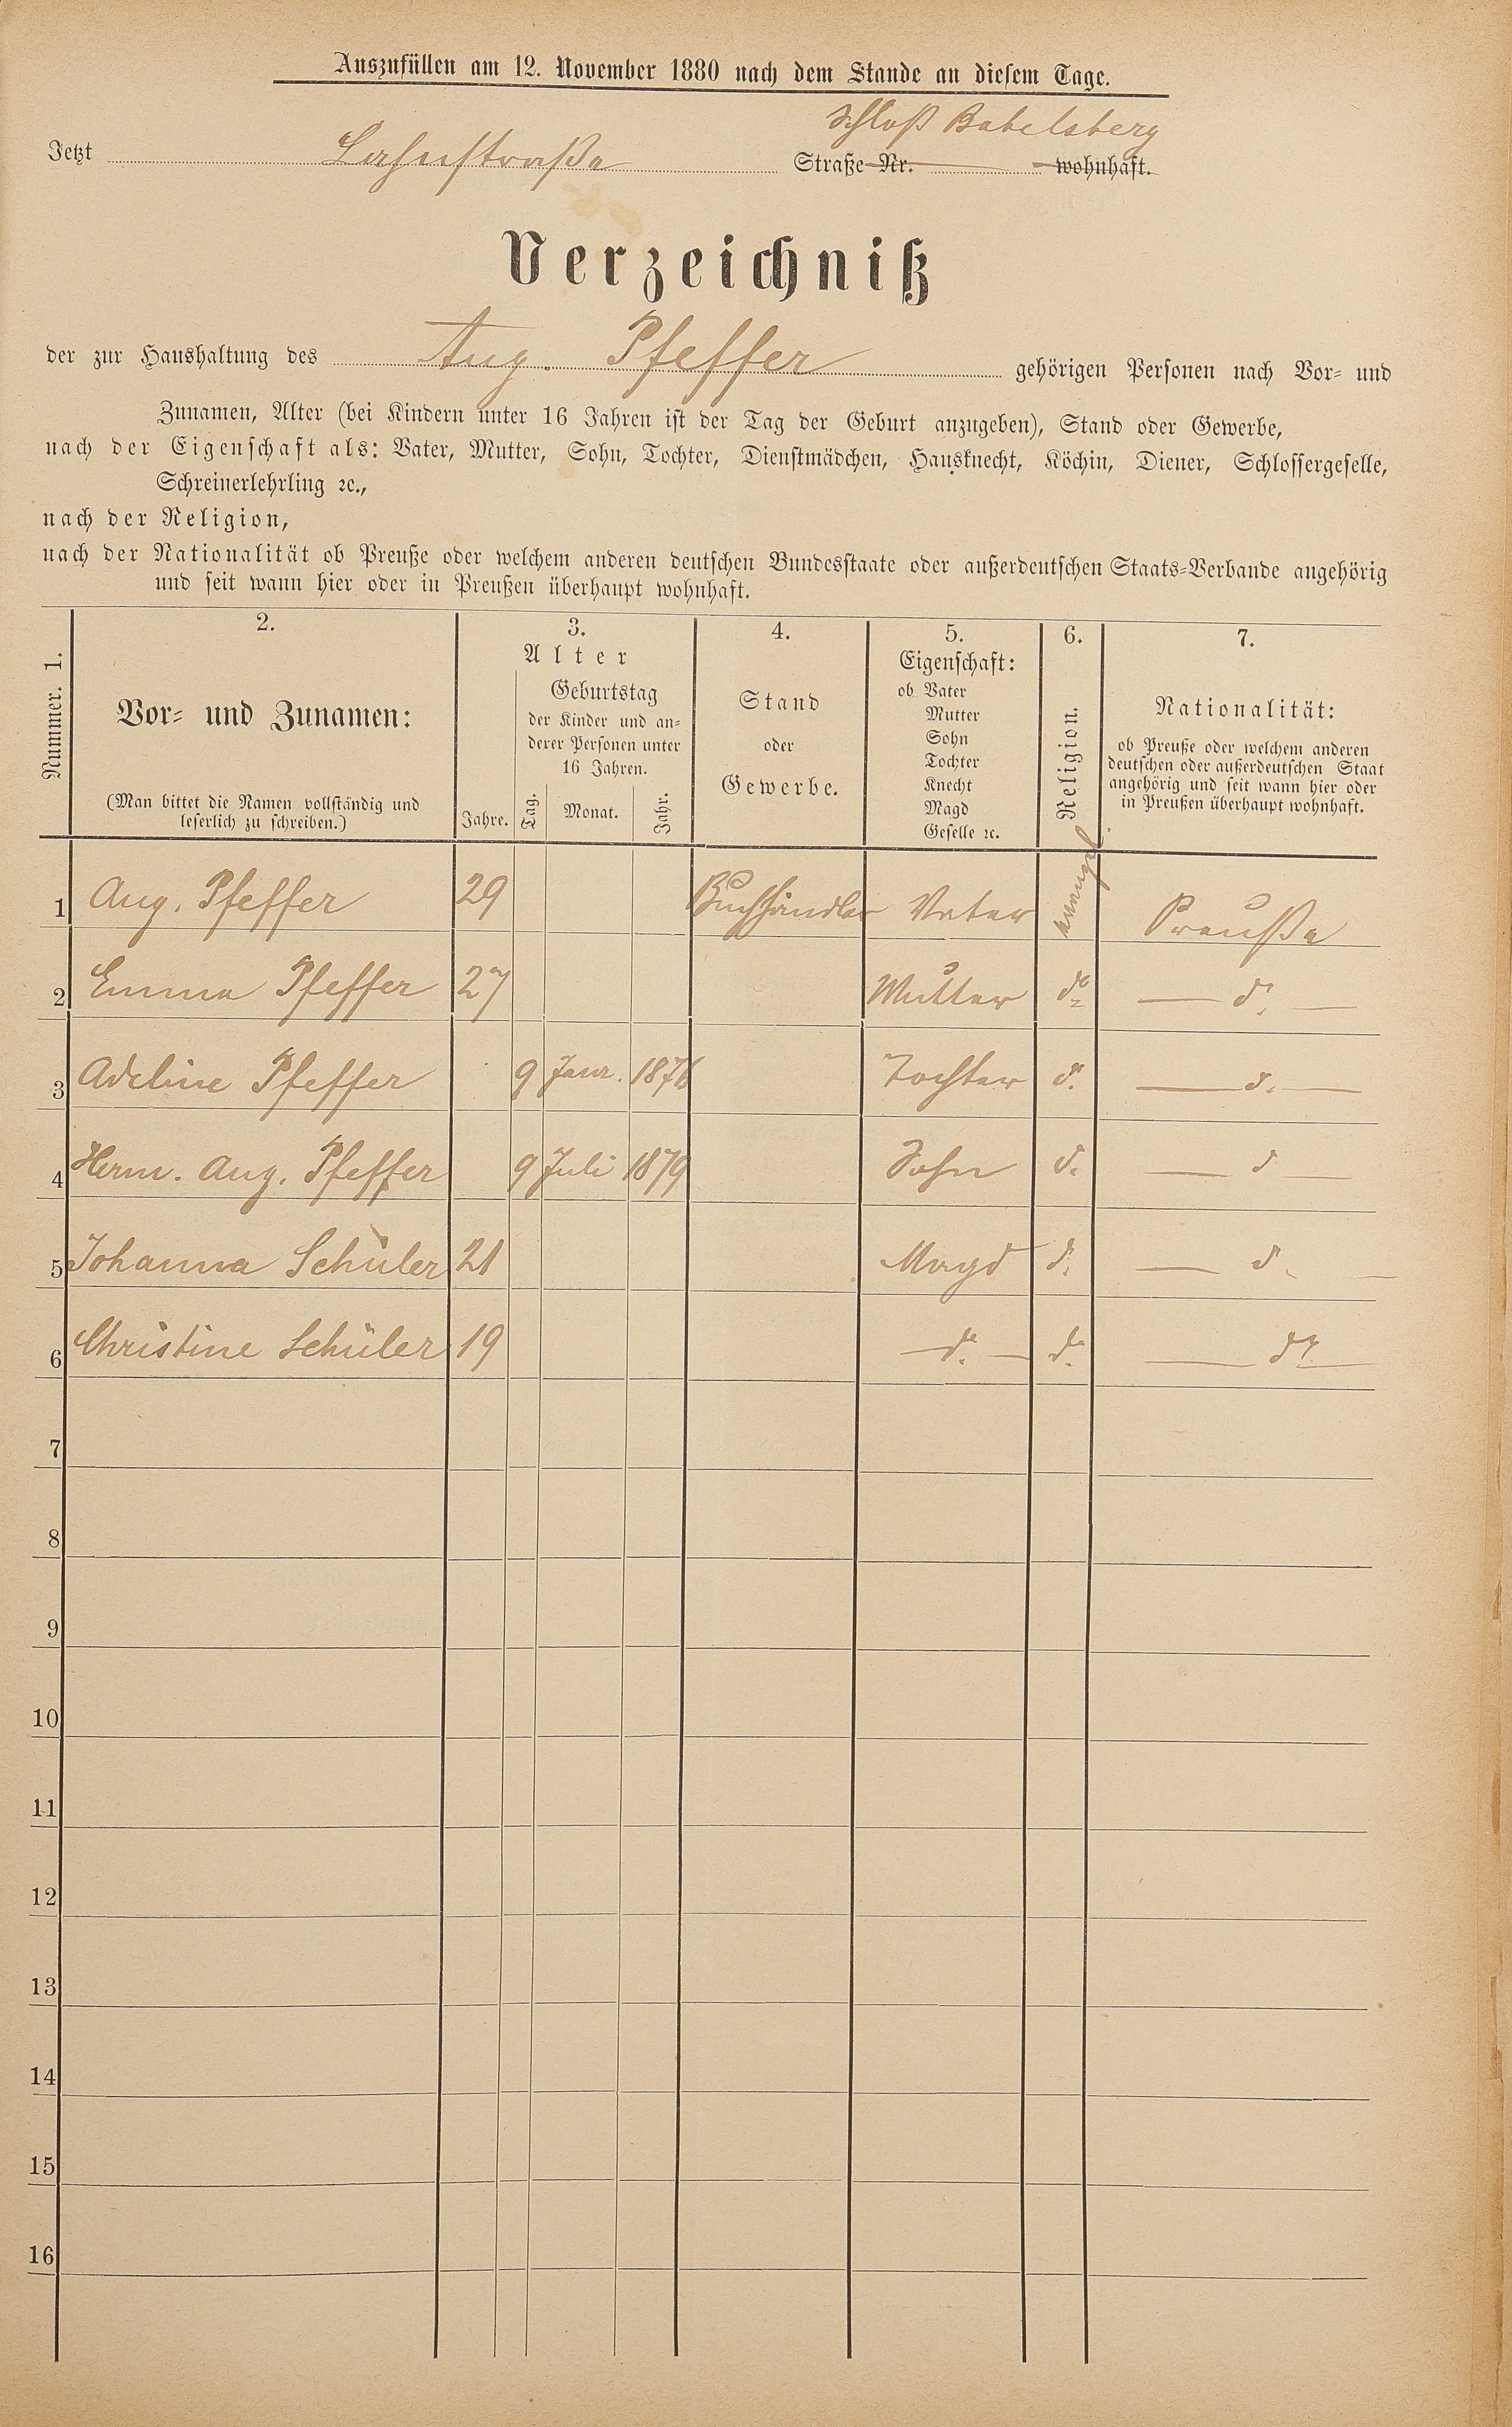 Auszufüllen am 12. November 1880 nach dem Stande an diesem Tage.
Schloß Babelsberg
Jetzt Lahnstraße Straße Nr. wohnhaft.
Verzeichniß
der zur Haushaltung des Aug. Pfeffer gehörigen Personen nach Vor- und
Zunamen, Alter (bei Kindern unter 16 Jahren ist der Tag der Geburt anzugeben), Stand oder Gewerbe,
nach der Eigenschaft als: Vater, Mutter, Sohn, Tochter, Dienstmädchen, Hausknecht, Köchin, Diener, Schlossergeselle,
Schreinerlehrling ꝛc.,
nach der Religion,
nach der Nationalität ob Preuße oder welchem anderen deutschen Bundesstaate oder außerdeutschen Staats-Verbande angehörig
und seit wann hier oder in Preußen überhaupt wohnhaft.
Nummer. 1.
2.
Vor- und Zunamen:
(Man bittet die Namen vollständig und
leserlich zu schreiben.)
3.
Alter
Jahre.
Geburtstag
der Kinder und an-
derer Personen unter
16 Jahren.
Tag. Monat. Jahr.
4.
Stand
oder
Gewerbe.
5.
Eigenschaft:
ob Vater
Mutter
Sohn
Tochter
Knecht
Magd
Geselle ꝛc.
6.
Religion.
7.
Nationalität:
ob Preuße oder welchem anderen
deutschen oder außerdeutschen Staat
angehörig und seit wann hier oder
in Preußen überhaupt wohnhaft.
1 Aug. Pfeffer 29 Buchhändler Vater evangel. Preuße
2 Emma Pfeffer 27 Mutter do — do —
3 Adeline Pfeffer 9 Janr. 1876 Tochter d. — d. —
4 Herm. Aug. Pfeffer 9 Juli 1879 Sohn d. — d —
5 Johanna Schüler 21 Magd d. — d. —
6 Christine Schüler 19 — d. — d. — do —
7
8
9
10
11
12
13
14
15
16